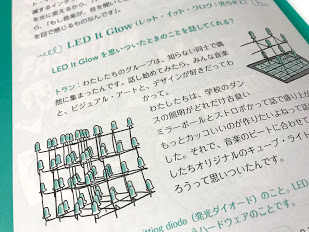 光に変えるから、パ
ら、(もし音楽が、目を開いて
を目で感じるものなんです)。
LED It Glow (レッド・イット・グロウ：光らせ
LED It Glow を思いついたときのことを話してくれる？
トラン：わたしたちのグループは、知らない同士で偶
然に集まったんです。話し始めてみたら、みんな音楽
と、ビジュアル・アートと、デザインが好きだってわ
かって。
わたしたちは、学校のダン
スの照明がどれだけ古臭い
ミラーボールとストロボかって話で盛り上が
もっとカッコいいのが作りたいよねって話
した。それで、音楽のビートに合わせて
したちオリジナルのキューブ・ライト
ろうって思いついたんです。
itting diode (発光ダイオード) のこと。LED
ハードウェアのことです。